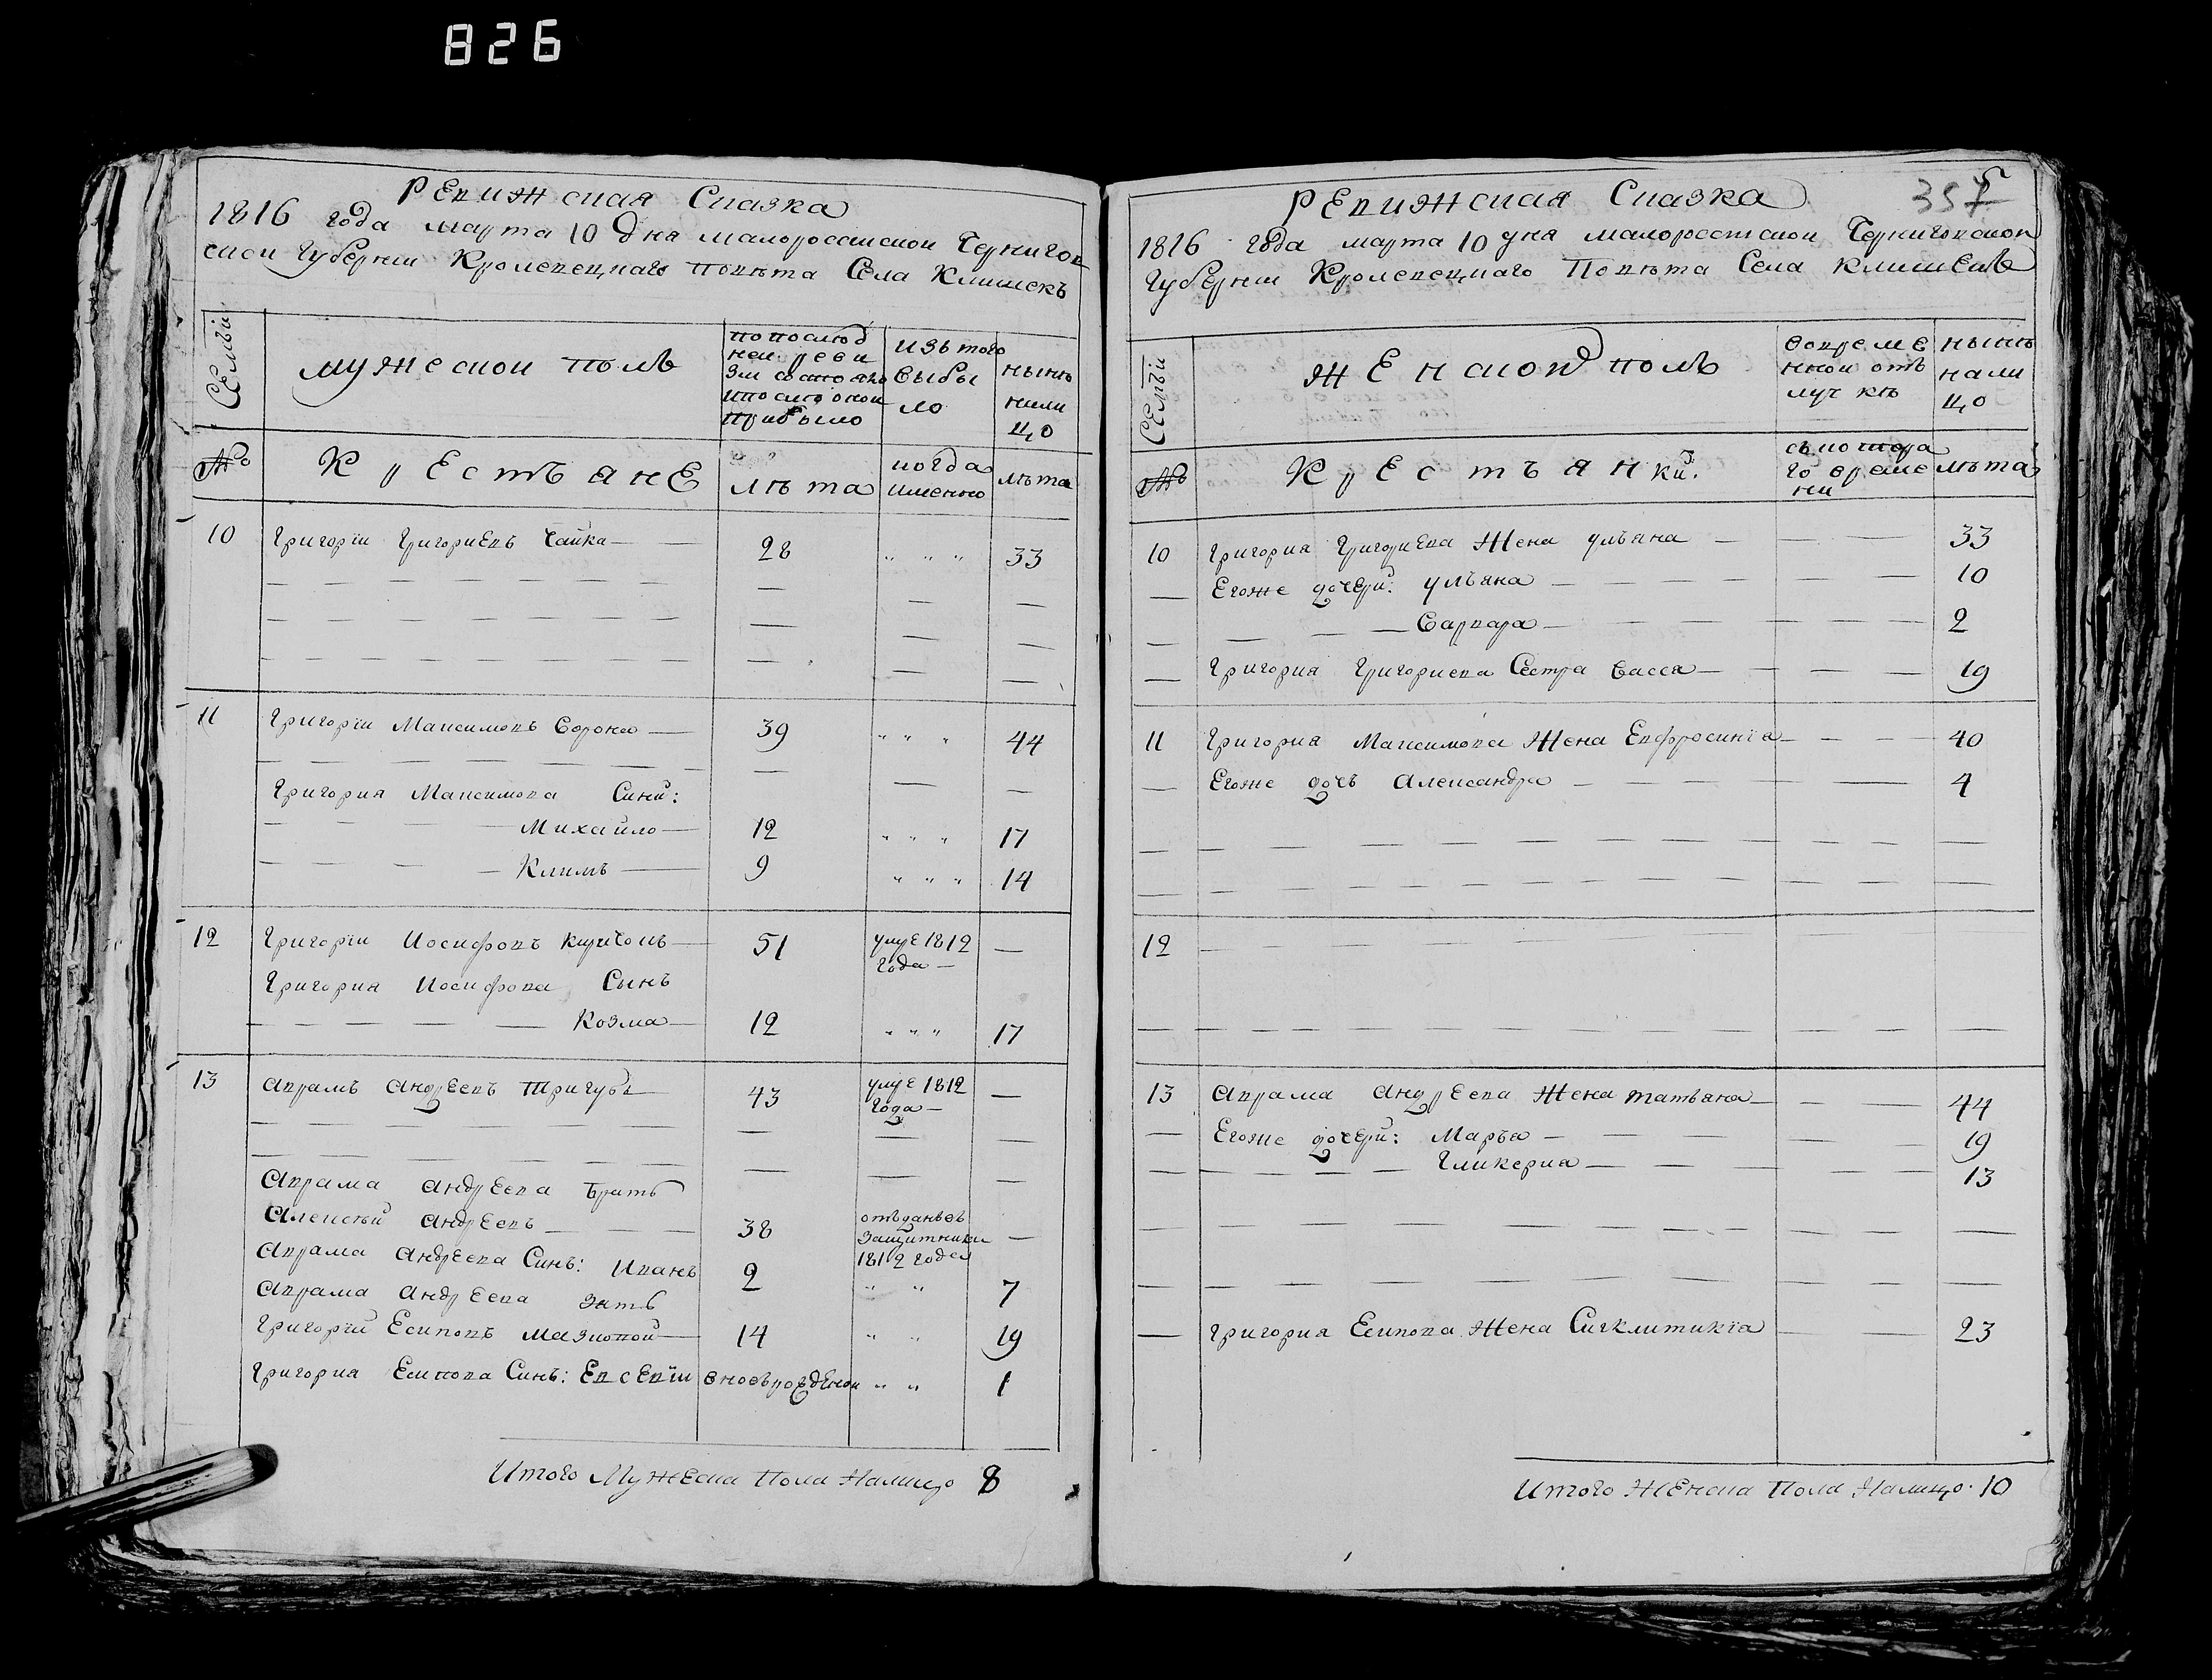 826
Ревижская Сказка
1816 года марта 10 дня малороссиской Чернигов
ской Губернии Кролевецкаго повѣта Села Клишекъ
Семьи
мужеской полъ
попослѣд
ней реви
зіи состояло
ипослѣ оной
прибыло
изъ того
выбы
ло
нынѣ
нали
цо
№
Крестьяне
лѣта
когда
именно
лѣта
10 Григорій Григориевъ Чайка 28 " " " 33
11 Григорій Максимовъ Ворона 39 " " " 44
Григория Максимова Сини:
Михайло 12 " " " 17
Климъ 9 " " " 14
12 Григорій Иосифовъ 51 умре 1812 года —
Григория Иосифова Сынъ
Козма 12 " " " 17
13 Аврамъ Андреевъ Тригубъ 43 умре 1812 года —
Аврама Андреева Братъ
Алексѣй Андреевъ 38 отъданъвъ защитники 1812 года —
Аврама Андреева Синъ: Иванъ 2 " " 7
Аврама Андреева зять
Григорій Есиповъ 14 " " 19
Григория Есипова Синъ: Евсевій " " 1
Итого Мужеска Пола Налицо 8
Ревижская Сказка
357
1816 года марта 10 дня малороссиской Черниговской
Губернии Кролевецкаго Повѣта Села Клишекъ
Семьи
Женской полъ
вовреме
нной отъ
луч кѣ
нынѣ
нали
цо
№
Крестьянки.
съкотора
го време
ни
лѣта
10 Григория Григориева Жена ульяна 33
Егоже дочери: ульяна 10
Варвара 2
Григория Григориева Сестра Васса 19
11 Григория Максимова Жена Евфросинія 40
Егоже дочь Александра 4
12
13 Аврама Андреева Жена татьяна 44
Егоже дочери: Марья 19
Гликерия 13
Григория Есипова Жена Сигклитикіа 23
Итого Женска Пола Налицо. 10